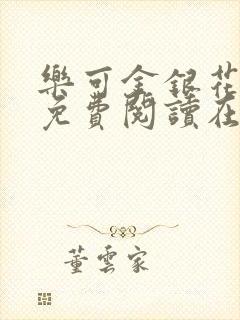 樂可金銀花
免費閱讀在
董雲家